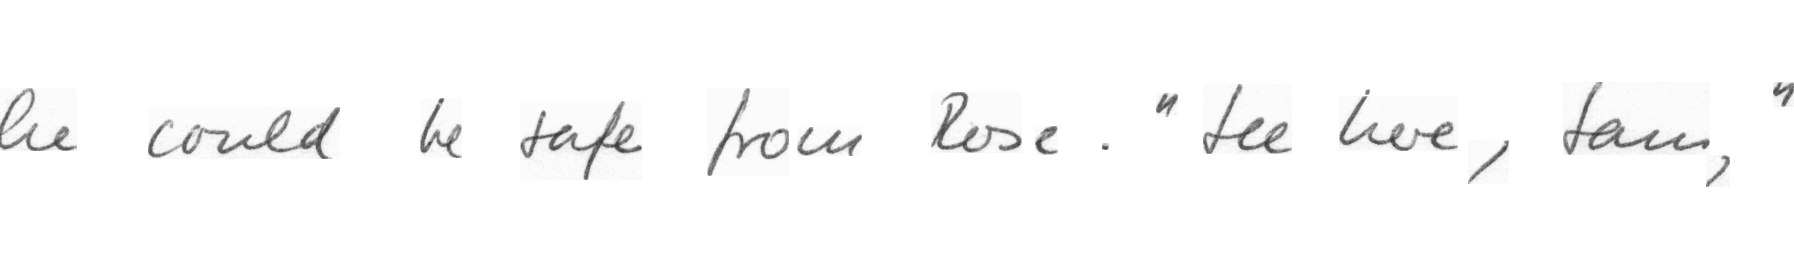 he could be safe from Rose. "See here, Sam,"